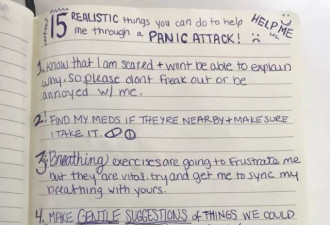 15 REALISTIC things you can do to help HELP ME
me through a PANIC ATTACK!
1. know that I am scared + wont be able to explain
why. SO please dont freak out or be
annoyed w/ me.
2! FIND MY MEDS IF THEYRE NEARBY + MAKE SURE
I TAKE IT.
3. Breathing exercises are going to frustrate me
but they are vital. try and get me to sync my
breathing with yours.
4. MAKE GENTLE SUGGESTIONS of THINGS WE COULD